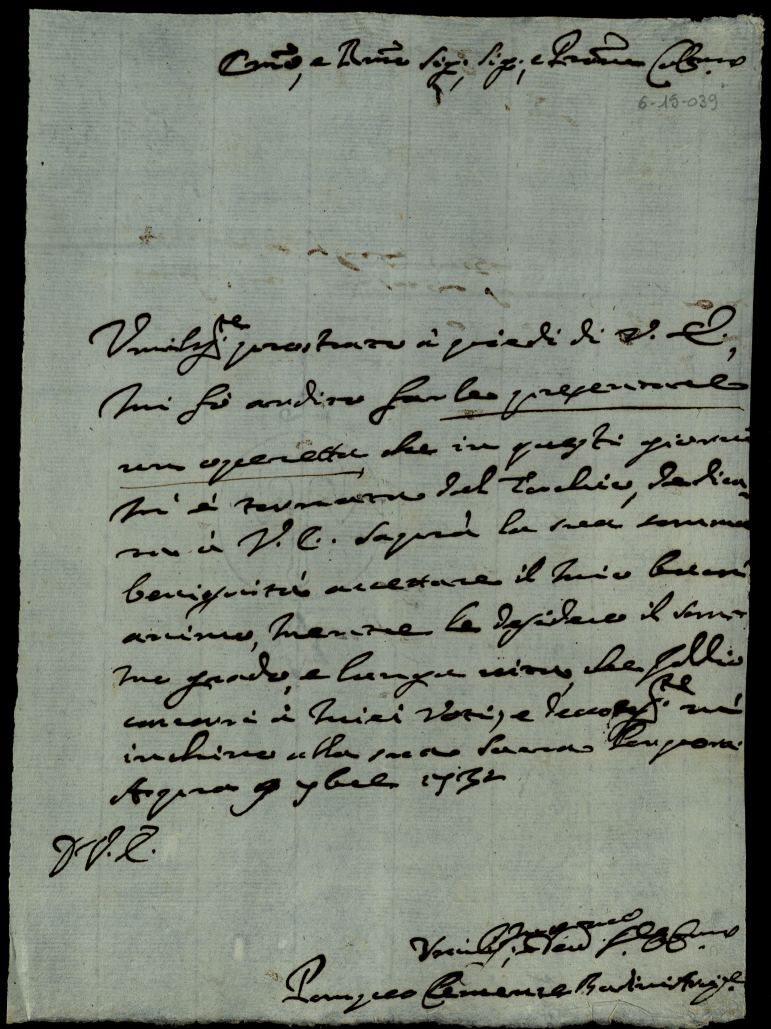 Em.o, e R.mo Sig.r, Sig.r, e P.rone Col.mo
6-15-039
Umiliss.te prostrato à piedi di V. E.,
mi fò ardito farle presentare
un operetta, che in questi giorni
mi è tornata dal Torchio, dedica-
ta à V. E. Saprà la sua somma
benignità accettare il mio buon
animo, mentre le desidero il som-
mo grado, e lunga vita, che Iddio
concorri à miei voti, e mi
inchino alla sua Sacra Porpora
9 7bre 1732
D V. E.
Umiliss.
Pompeo Clemente